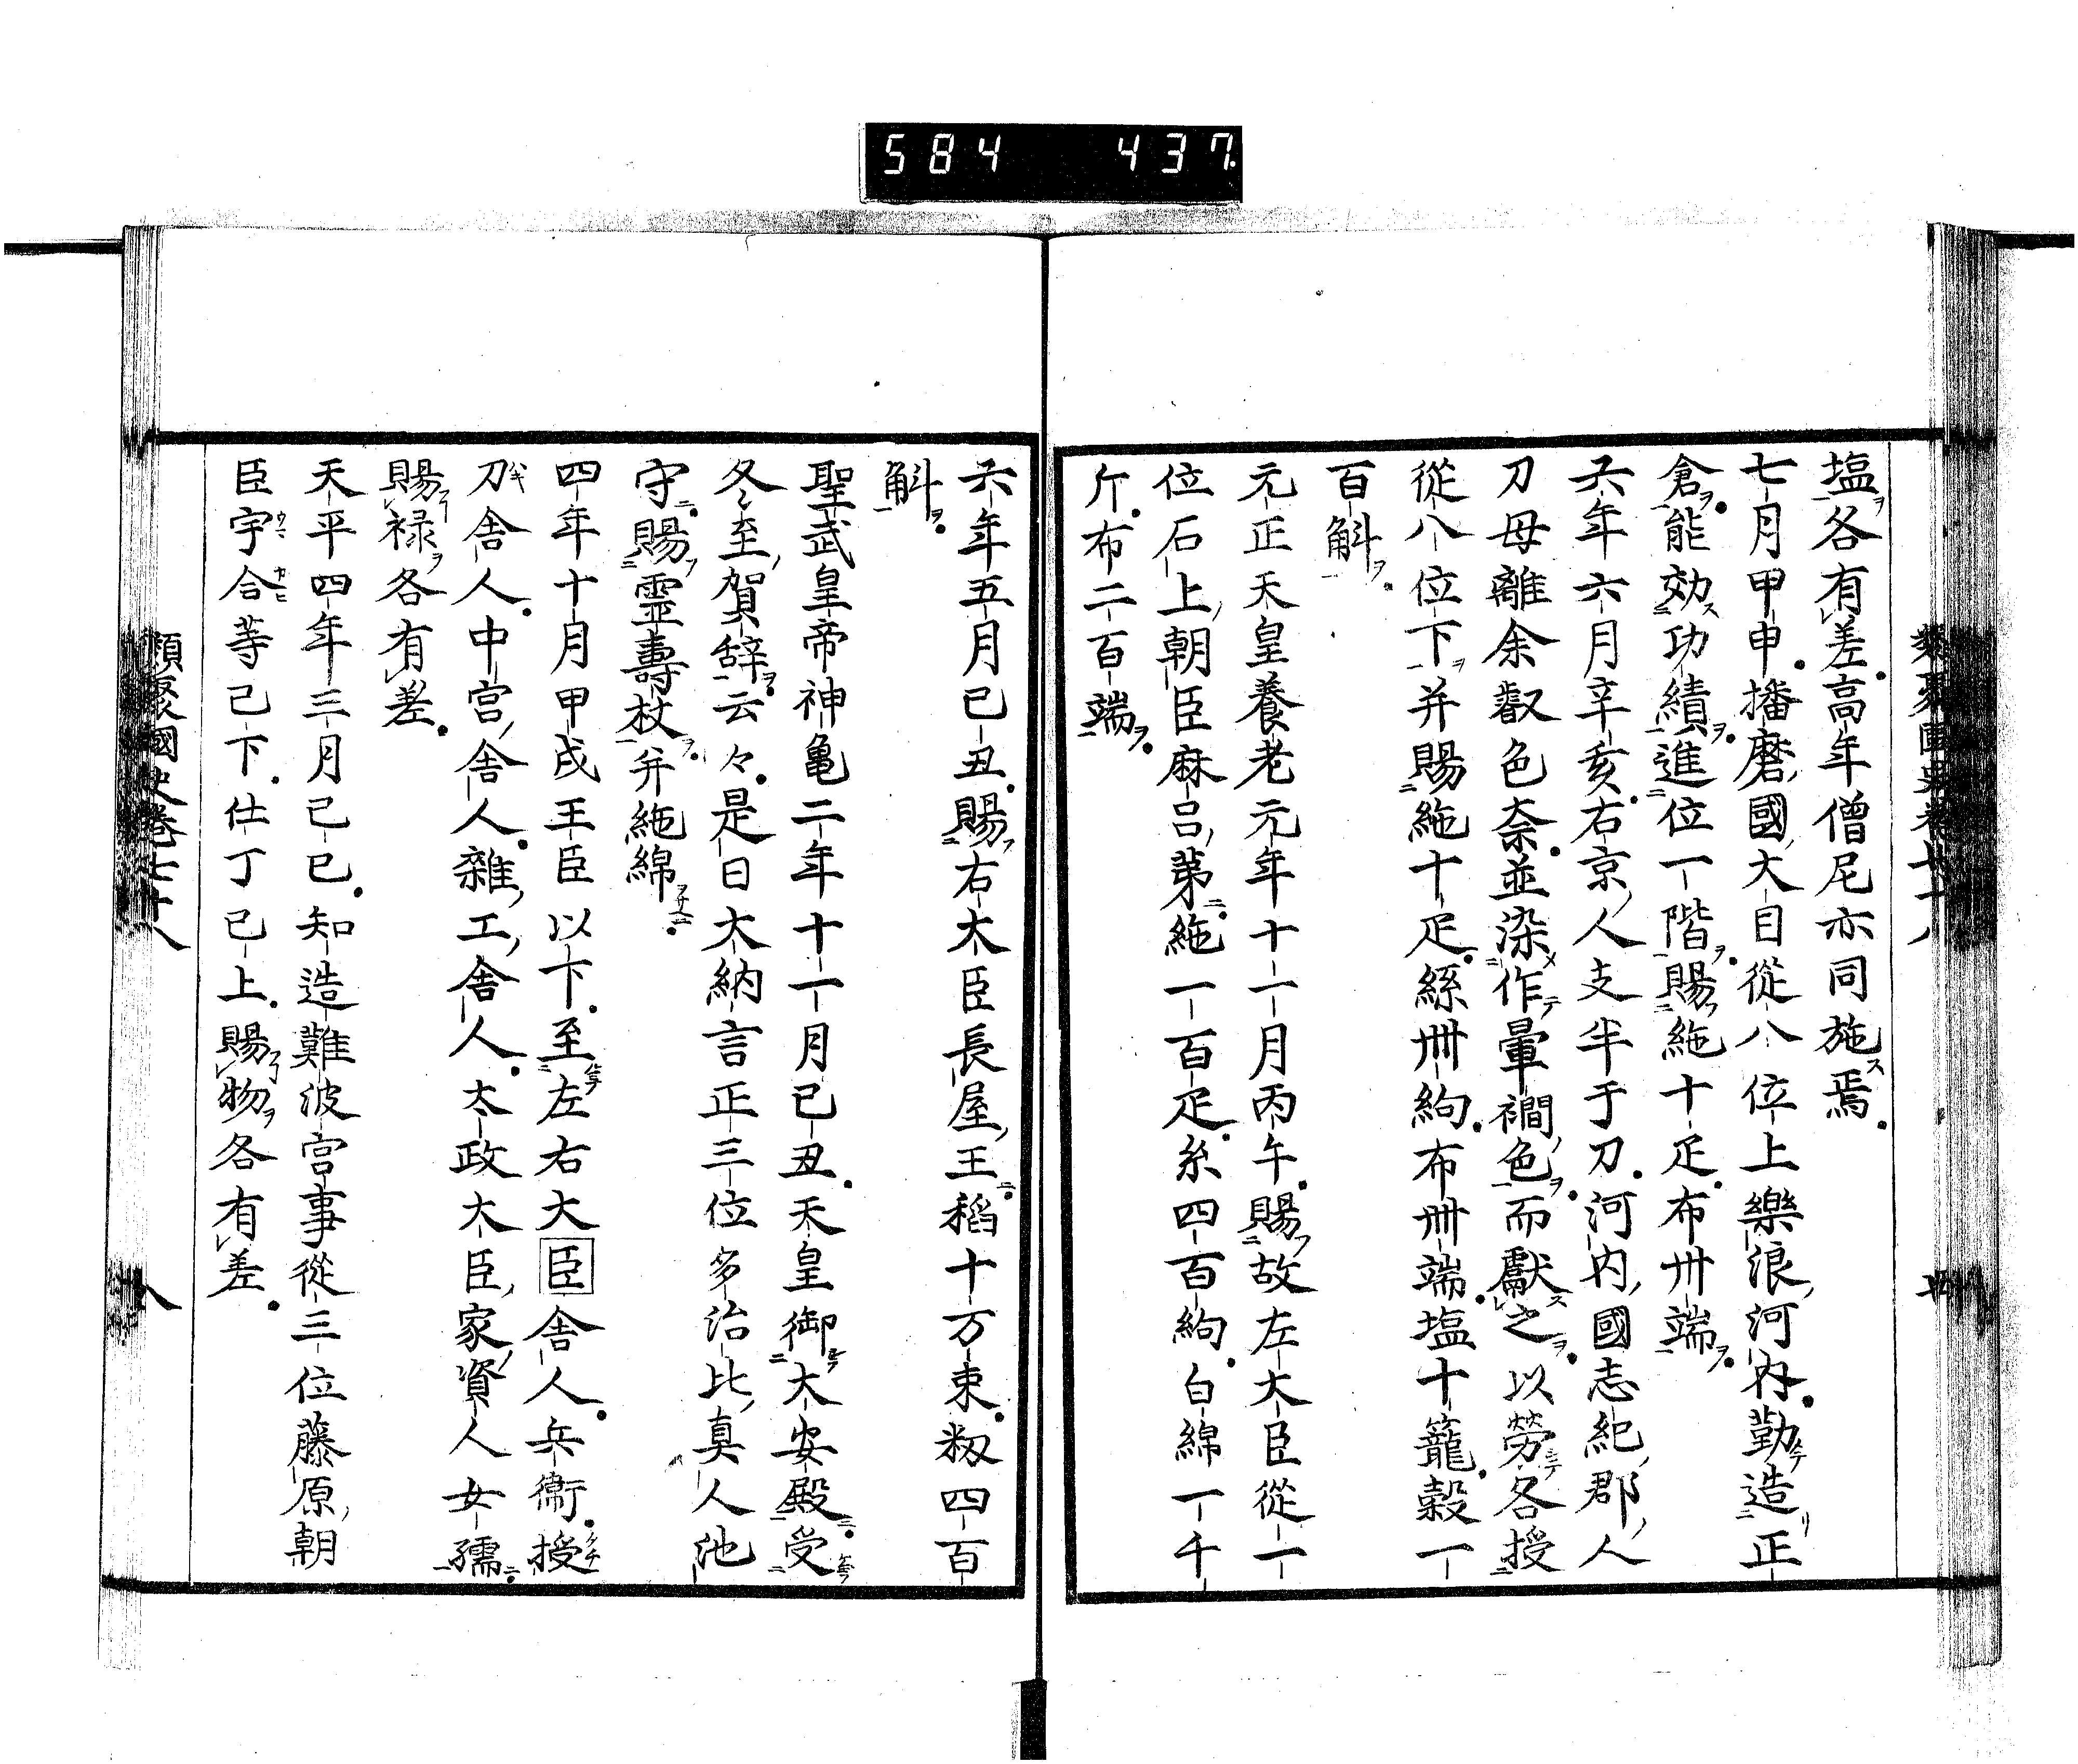 584 437
塩各有差高年僧尼亦同施焉
七月甲申播磨國大目從八位上樂浪河内勤造正
倉能効功績進位一階賜絁十疋布卅端
六年六月辛亥右京人支半于刀河内國志紀郡人
刀母離余叡色奈並染作暈繝色而獻之以勞各授
從八位下并賜絁十疋絲卌絇布卌端塩十籠穀一
百斛
元正天皇養老元年十一月丙午賜故左大臣從一
位石上朝臣麻呂第絁一百疋糸四百絇白綿一千
斤布二百端
六年五月己丑賜右大臣長屋王稻十万束籾四百
斛
聖武皇帝神亀二年十一月己丑天皇御大安殿受
冬至賀辞云々是日大納言正三位多治比真人池
守賜靈壽杖并絁綿
四年十月甲戌王臣以下至左右大臣舎人兵衛授
刀舎人中宮舎人雜工舎人太政大臣家資人女孺
賜禄各有差
天平四年三月己巳知造難波宮事從三位藤原朝
臣宇合等已下仕丁已上賜物各有差
類聚國史巻七十八
八